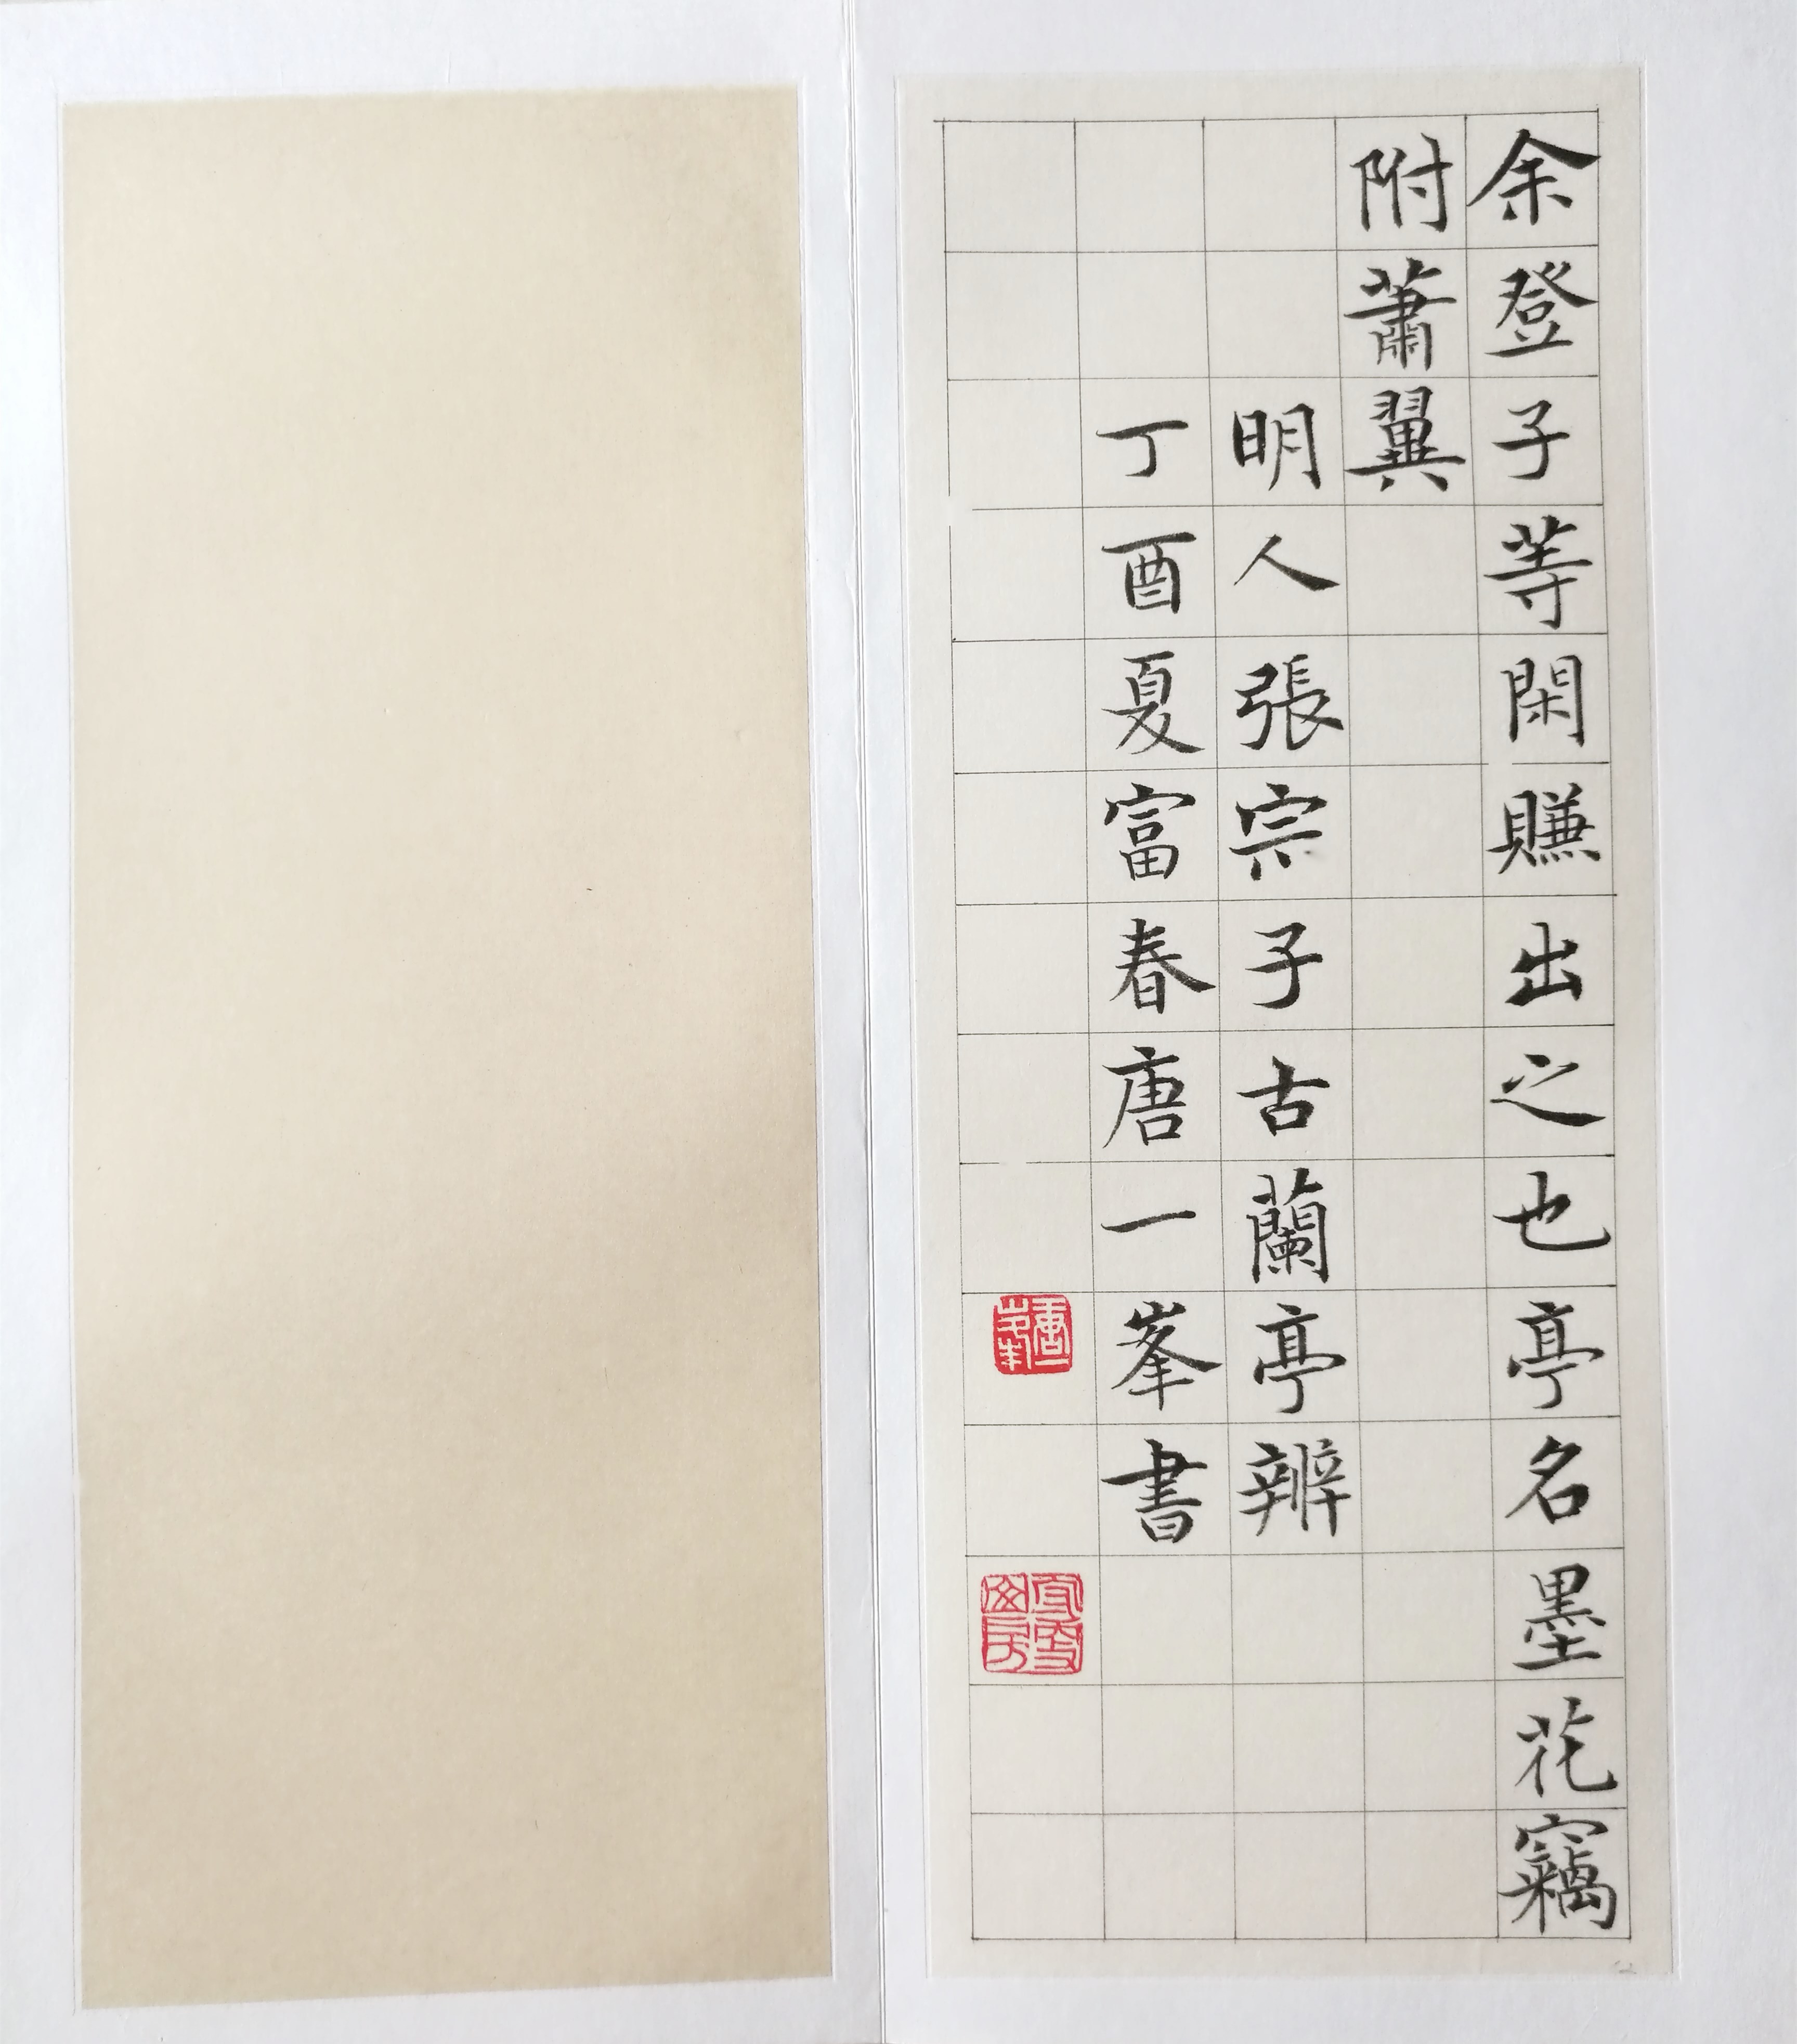 余登子等閑賺出之也亭名墨花竊
附蕭翼
明人張宗子古蘭亭辨
丁酉夏富春唐一峯書
唐一峯印